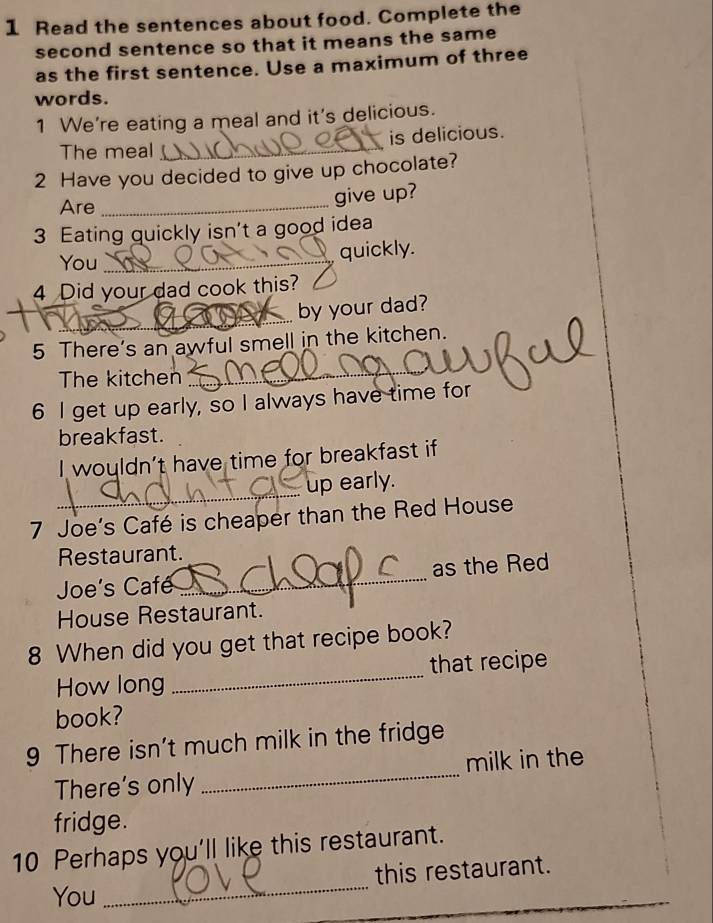 1 Read the sentences about food. Complete the
second sentence so that it means the same
as the first sentence. Use a maximum of three
words.
1 We're eating a meal and it's delicious.
The meal which we eat is delicious.
2 Have you decided to give up chocolate?
Are ______ give up?
3 Eating quickly isn't a good idea
You eating quickly.
4 Did your dad cook this?
by your dad?
5 There's an awful smell in the kitchen.
The kitchen smelling awful
6 I get up early, so I always have time for
breakfast.
I wouldn't have time for breakfast if
I didn't get up early.
7 Joe's Café is cheaper than the Red House
Restaurant.
Joe's Café as cheap as the Red
House Restaurant.
8 When did you get that recipe book?
How long ______ that recipe
book?
9 There isn't much milk in the fridge
There's only ______ milk in the
fridge.
10 Perhaps you'll like this restaurant.
You love this restaurant.